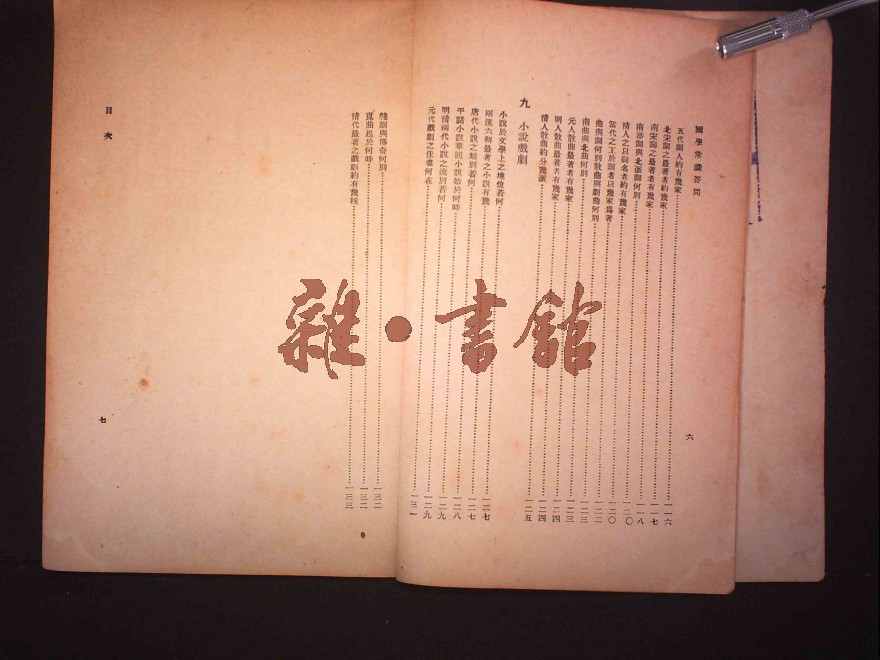 國學常識答問
五代詞人約有幾家……一一六
北宋詞之最著者約幾家……一一六
南宋詞之最著者有幾家……一一七
南派詞與北派詞何別……一一八
清人之以詞名者約有幾家……一二〇
當代之工於詞者以幾家為著……一二〇
曲與詞何別散曲與劇曲何別……一二二
南曲與北曲何別……一二三
元人散曲最著者有幾家……一二三
明人散曲最著者有幾家……一二四
清人散曲約分幾派……一二四
九 小說戲劇……一二五
小說於文學上之地位若何
兩漢六朝最著之小說有幾……一二七
唐代小說之類別若何……一二七
平話小說章回小說始於何時……一二八
明清兩代小說之流別若何……一二九
元代戲劇之佳處何在……一二九
一三一
六
雜·書館
雜劇與傳奇何別……一三二
崑曲起於何時……一三二
清代最著之戲劇約有幾種……一三三
目次
七